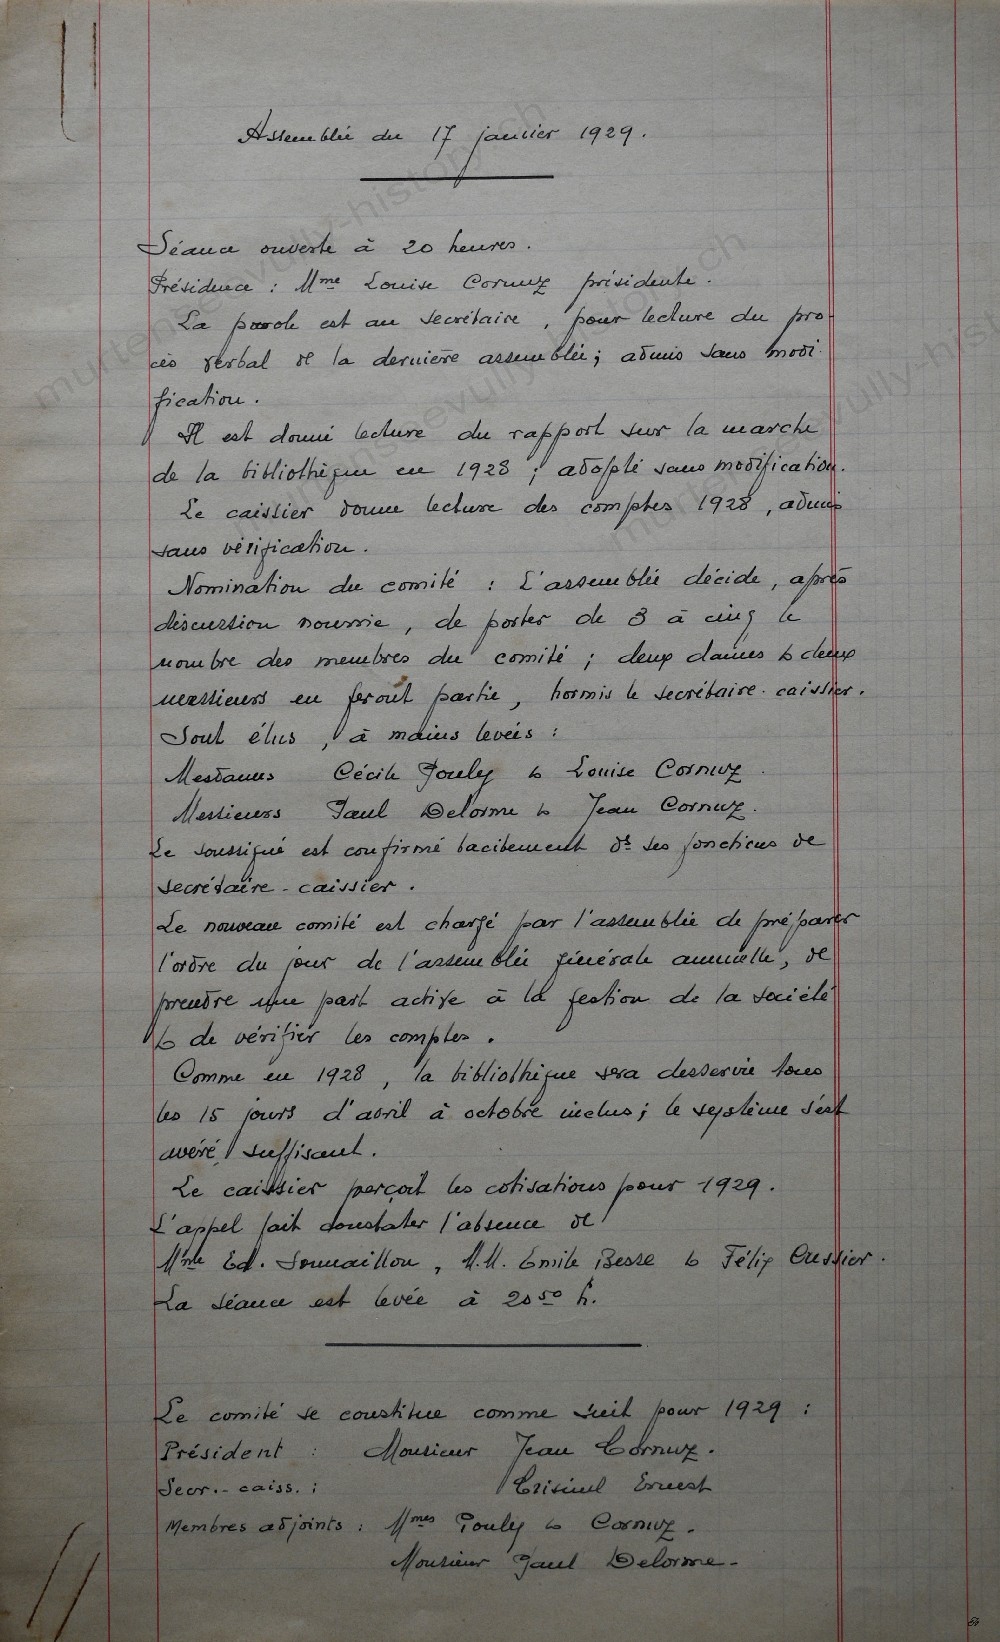 Assemblée du 17 janvier 1929.
Séance ouverte à 20 heures.
Présidence : Mme Louise Cornuz présidente.
La parole est au secrétaire, pour lecture du pro-
cès verbal de la dernière assemblée ; admis sans modi-
fication.
Il est donné lecture du rapport sur la marche
de la bibliothèque en 1928 ; adopté sans modification.
Le caissier donne lecture des comptes 1928, admis
sans vérification.
Nomination du comité : L'assemblée décide, après
discussion nourrie, de porter de 3 à cinq le
nombre des membres du comité ; deux dames & deux
messieurs en feront partie, hormis le secrétaire-caissier.
Sont élus, à mains levées :
Mesdames Cécile Pouly & Louise Cornuz.
Messieurs Paul Delorme & Jean Cornuz.
Le soussigné est confirmé tacitement ds ses fonctions de
secrétaire-caissier.
Le nouveau comité est chargé par l'assemblée de préparer
l'ordre du jour de l'assemblée générale annuelle, de
prendre une part active à la gestion de la société
& de vérifier les comptes.
Comme en 1928, la bibliothèque sera desservie tous
les 15 jours d'avril à octobre inclus ; le système s'est
avéré suffisant.
Le caissier perçoit les cotisations pour 1929.
L'appel fait constater l'absence de
Mme Ed. Sonnaillon, M.M. Emile Besse & Félix Cressier.
La séance est levée à 20 50 h.
Le comité se constitue comme suit pour 1929 :
Président : Monsieur Jean Cornuz.
Secr.-caiss. : Crisinel Ernest
Membres adjoints : Mmes Pouly & Cornuz.
Monsieur Paul Delorme-